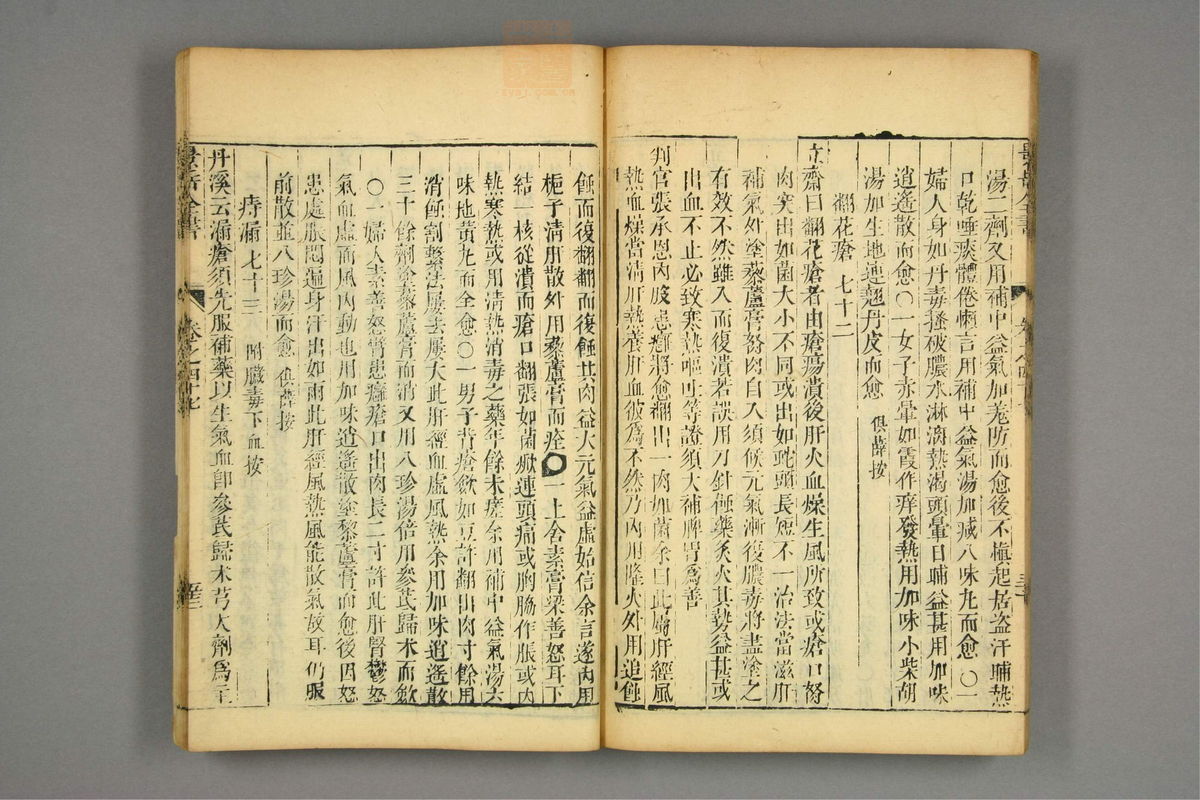 湯二劑又用補中益氣加羌防而愈後不愼起居盜汗晡熱
口乾唾痰體倦懶言用補中益氣湯加减八味丸而愈○一
婦人身如丹毒搔破膿水淋漓熱渴頭暈日晡益甚用加味
逍遙散而愈○一女子赤暈如霞作痒發熱用加味小柴胡
湯加生地連翹丹皮而愈 俱薛按
翻花瘡 七十二
立齋曰翻花瘡者由瘡瘍潰後肝火血燥生風所致或瘡口努
肉突出如菌大小不同或出如蛇頭長短不一治法當滋肝
補氣外塗藜蘆膏努肉自入須候元氣漸復膿毒將盡塗之
有效不然雖入而復潰若誤用刀針蝕藥灸火其勢益甚或
出血不止必致寒熱嘔吐等證須大補脾胃爲善
判官張承恩內股患癰將愈翻出一肉如菌余曰此屬肝經風
熱血燥當清肝熱養肝血彼爲不然乃內用降火外用追蝕
蝕而後翻翻而復蝕其肉益大元氣益虛始信余言遂內用
梔子清肝散外用藜蘆膏而痊○一上舍素膏粱善怒耳下
結一核從潰而瘡口翻張如菌㷻連頭痛或胸脇作脹或內
熱寒熱或用清熱消毒之藥年餘未瘥余用補中益氣湯六
味地黄丸而全愈○一男子背瘡斂如豆許翻出肉寸餘用
消蝕割繫法屢去屢大此肝經血虛風熱余用加味逍遙散
三十餘劑塗藜蘆膏而消又用八珍湯倍用參芪歸术而斂
○一婦人素善怒臂患癰瘡口出肉長二寸許此肝腎鬱怒
氣血虛而風內動也用加味逍遙散塗藜蘆膏而愈後因怒
患處脹悶遍身汗出如雨此肝經風熱風能散氣故耳仍服
前散並八珍湯而愈 俱薛按
痔漏 七十三 附臟毒下血按
丹溪云漏瘡須先服補藥以生氣血卽參芪歸术芎大劑爲主
景岳全書
卷之四十七